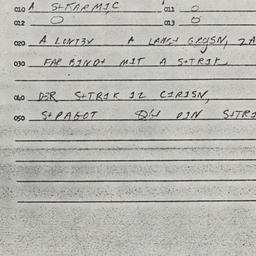 010 A S+TARMIC 011 O
012 O 013 O
020 A LONT3V A LANG+ GRQSN, ZA
030 FAR BIND+ MIT A S+TRIK
040 DER S+TRIK IZ CIRISN,
050 S+PAGOT DIN S+TRI